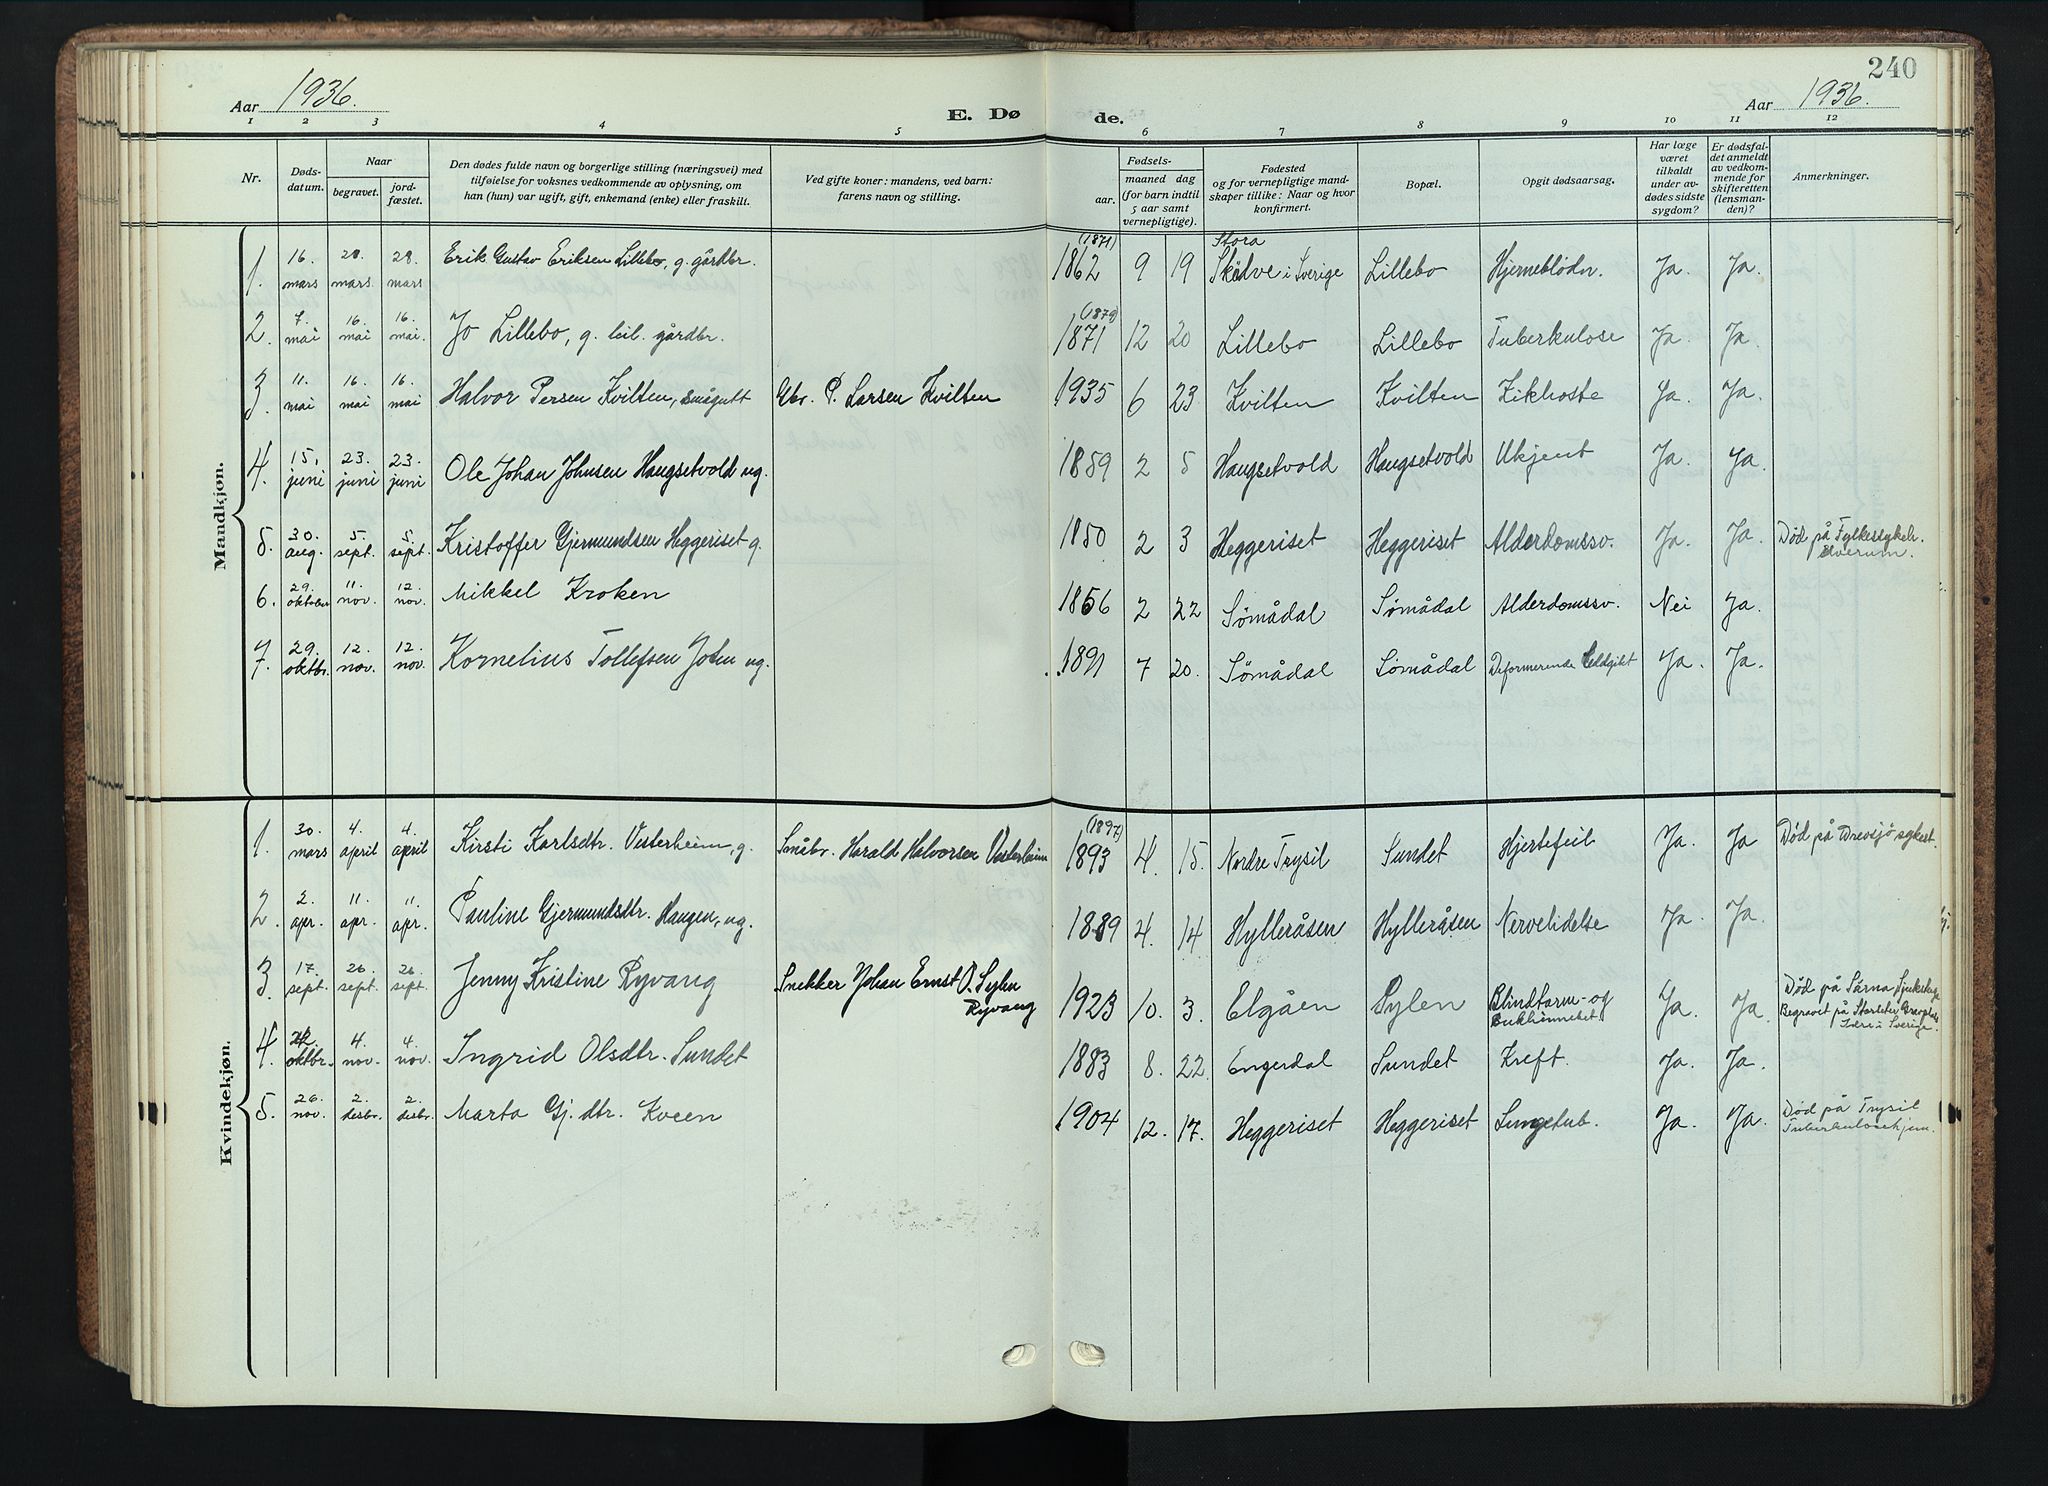 240
Aar 1936.
E. Dø de.
Aar 1936.
1 2 3 4 5 6 7 8 9 10 11 12
Nr.
Døds-
datum.
Naar
begravet.
jord-
fæstet.
Den dødes fulde navn og borgerlige stilling (næringsvei) med
tilføielse for voksnes vedkommende av oplysning, om
han (hun) var ugift, gift, enkemand (enke) eller fraskilt.
Ved gifte koner: mandens, ved barn:
farens navn og stilling.
Fødsels-
aar. maaned dag
(for barn indtil
5 aar samt
vernepligtige).
Fødested
og for vernepligtige mand-
skaper tillike: Naar og hvor
konfirmert.
Bopæl.
Opgit dødsaarsag.
Har læge
været
tilkaldt
under av-
dødes sidste
sygdom?
Er dødsfal-
det anmeldt
av vedkom-
mende for
skifteretten
(lensman-
den)?
Anmerkninger.
Mandkjøn.
1. 16. mars 28. mars 28. mars Erik Gustav Eriksen Lillebo, g. gårdbr. (1871) 1862 9 19 Stora Skedve i Sverige Lillebo Hjerneblødn. Ja. Ja.
2. 7. mai 16. mai 16. mai. Jo Lillebo, g. leil. gårdbr. (1879) 1871 12 20 Lillebo Lillebo Tuberkulose Ja. Ja.
3. 11. mai 16. mai 16. mai Halvor Persen Kvilten, smågutt Gbr. P. Larsen Kvilten 1935 6 23 Kvilten Kvilten Kikhoste Ja. Ja.
4. 15. juni 23. juni 23. juni Ole Johan Johnsen Haugsetvold ug. 1859 2 5 Haugsetvold Haugsetvold Ukjent Ja. Ja.
5. 30. aug. 5. sept. 5. sept. Kristoffer Gjermundsen Heggeriset g. 1850 2 3 Heggeriset Heggeriset Alderdomssv. Ja. Ja. Død på Fylkessykeh.
Elverum.
6. 29. oktober 11. nov. 12. nov. Mikkel Kroken 1856 2 22 Sømådal Sømådal Alderdomssv. Nei Ja.
7. 29. oktbr. 12. nov. 12. nov. Kornelius Tollefsen Joten ug. 1891 7 20. Sømådal Sømådal Deformerende Leddgikt Ja. Ja.
Kvindekjøn.
1. 30. mars 4. april 4. april Kirsti Karlsdtr. Vesterheim, g. Småbr. Harald Halvorsen Vesterheim (1897) 1893 4. 15. Nordre Trysil Sundet Hjertefeil Ja. Ja Død på Drevsjø sykest.
2. 2. apr. 11. apr. 11. apr. Pauline Gjermundsdtr. Haugen, ug. 1889 4. 14 Hylleråsen Hylleråsen Nervelidelse Ja Ja.
3. 17. sept. 26. sept. 26. sept. Jenny Kristine Ryvang Snekker Johan Ernst O. Sylen
Ryvang 1923 10. 3. Elgåen Sylen Blindtarm- og
Bukhinnebet. Ja. Ja. Død på Särna sjukstuga
Begravet på Storsäter Gravplass
Idre i Sverige.
4. oktbr. 4. nov. 4. nov. Ingrid Olsdtr. Sundet 1883 8. 22. Engerdal Sundet Kreft. Ja. Ja.
5. 26. nov. 2. desbr. 2. desbr. Marta Gj.dtr. Kveen 1904 12. 17. Heggeriset Heggeriset Lungetub. Ja. Ja. Død på Trysil
Tuberkulosehjem.